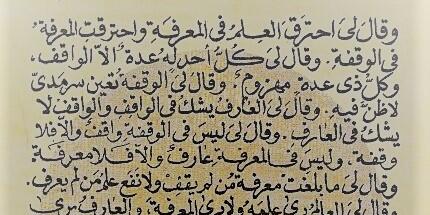 وقال لى احترق العلم فى المعرفة واحترقت المعرفة
فى الوقفة. وقال لى كل أحد له عدة الا الواقف،
وكل ذى عدة مهزوم. وقال لى الوقفة تعين سرمدى
لا ظن فيه. وقال لى العارف يشك فى الواقف والواقف لا
يشك فى العارف. وقال لى ليس فى الوقفة واقف والا فلا
وقفة. وليس فى المعرفة عارف والا فلا معرفة.
وقال لى ما بلغت معرفة من لم يقف ولا نفع علم من لم يعرف.
وقال لى العالم يرى علمه ولا يرى المعرفة، والعارف يرى